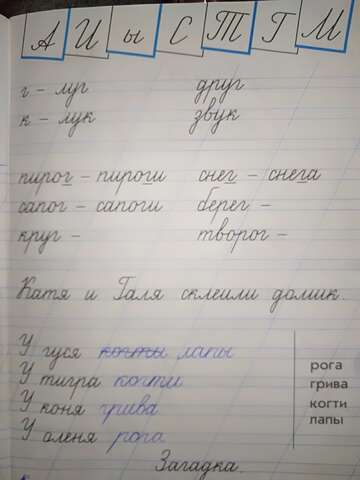 А И ы С Т Г М
г – луг друг
к – лук звук
пирог – пироги снег – снега
сапог – сапоги берег –
круг – творог –
Катя и Галя склеили домик.
У гуся когти лапы
У тигра когти
У коня грива
У оленя рога
рога
грива
когти
лапы
Загадка.